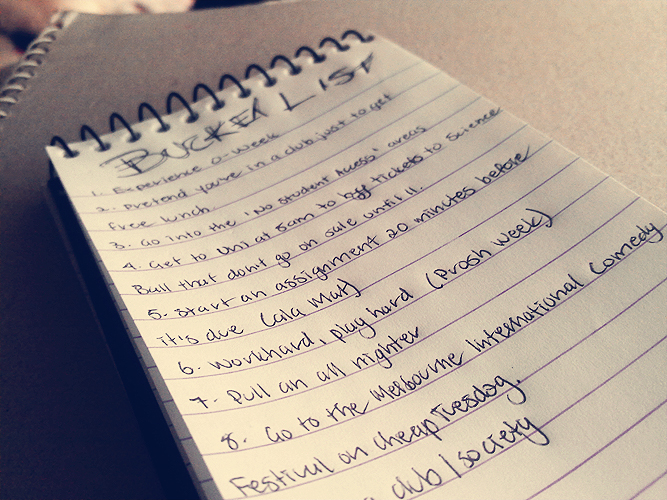 BUCKET LIST
1. Experience O-Week
2. Pretend you're in a club just to get
free lunch.
3. Go into the 'No Student Access' areas
4. Get to Uni at 5am to buy tickets to Science
Ball that dont go on sale until 11.
5. Start an assignment 20 minutes before
it's due (ala Mat)
6. Work hard, play hard (Prosh Week)
7. Pull an all nighter
8. Go to the Melbourne International Comedy
Festival on cheap Tuesday.
club/society